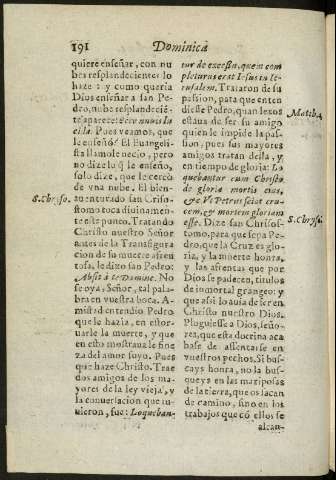 191
Dominica
quiere enseñar, con nu
bes resplandecientes lo
haze: y como queria
Dios enseñar a san Pe
dro, nube resplandeciẽ
te aparece: Ecce nubis lu
cida. Pues veamos, que
le enseñò? El Euangeli
sta llamole necio, pero
no dize lo q̃ le enseñò,
solo dize, que le cercò
de vna nube. El bien-
S.Chryso.
auenturado san Criso-
stomo toca diuinamen-
te este punto. Tratando
Christo nuestro Señor
antes de la Transfigura
cion de su muerte afren
tosa, le dixo san Pedro:
Absit à te Domine. No
se oya, Señor, tal pala
bra en vuestra boca. A-
mistad entendio Pedro
que le hazia, en estor-
uarle la muerte, y que
en esto mostraua le fine
za del amor suyo. Pues
que haze Christo. Trae
dos amigos de los ma-
yores de la ley vieja, y
la conuersacion que tu-
uieron, fue: Loqueban-
tur de excessu, quem com
pleturus erat Iesus in Ie-
rusalem. Trataron de su
passion, para que enten
diesse Pedro, quan lexos
Matth.4
estaua de ser su amigo
quien le impide la pas-
sion, pues sus mayores
amigos tratan della, y
en tiempo de gloria: Lo
quebantur cum Christo
de gloria mortis eius,
& Vt Petrus sciat cru-
cem, & mortem gloriam
S.Chryso.
esse. Dize san Chrisos-
tomo, para que sepa Pe-
dro, que la Cruz es glo-
ria, y la muerte honra,
y las afrentas que por
Dios se padecen, titulos
de inmortal grangeo: y
que assi lo auia de ser en
Christo nuestro Dios.
Pluguiesse a Dios, seño-
res, que esta doctrina aca
base de assentarse en
vuestros pechos. Si bus-
cays honra, no la bus-
queys en las mariposas
de la tierra, que os sacan
de camino, sino en los
trabajos que cõ ellos se
alcan-